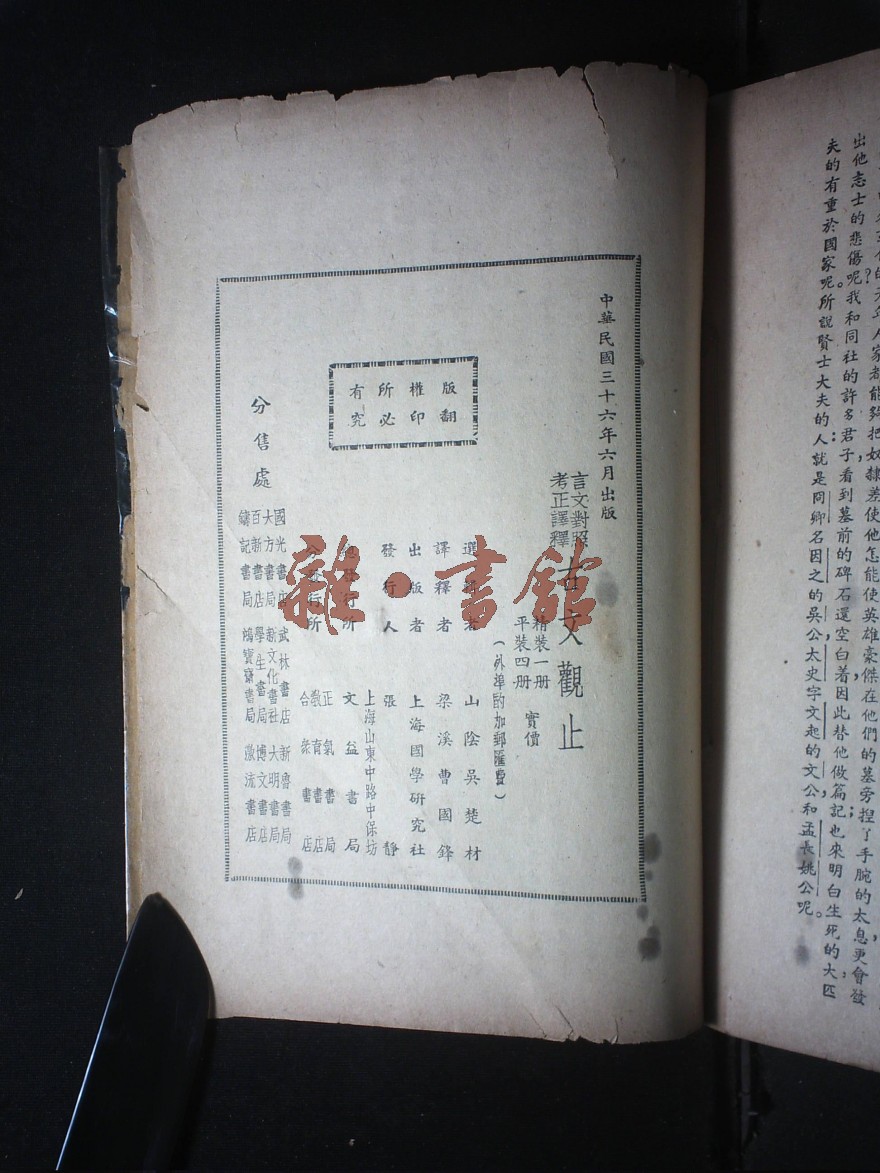 出他志士的悲傷呢?我和同社的許多君子看到墓前的碑石還空白着因此替他做篇記也來明白生死的大匹
夫的有重於國家呢所說賢士大夫的人就是冏卿名因之的吳公太史字文起的文公和孟長姚公呢。
中華民國三十六年六月出版
言文對照
考正譯釋
古文觀止
精裝一册
平裝四册
實價
(外埠酌加郵匯費)
版權所有
翻印必究
山陰吳楚材
譯釋者 梁溪曹國鋒
出版者 上海國學研究社
發行人 張靜
上海山東中路中保坊
文益書局
正氣書局
教育書店
合衆書店
分售處
國光書店 武林書店 新魯書局
大方書局 新文化書社 大明書局
百新書店 學生書局 博文書店
鑄記書局 鴻寶齋書局 激流書店
雜·書館